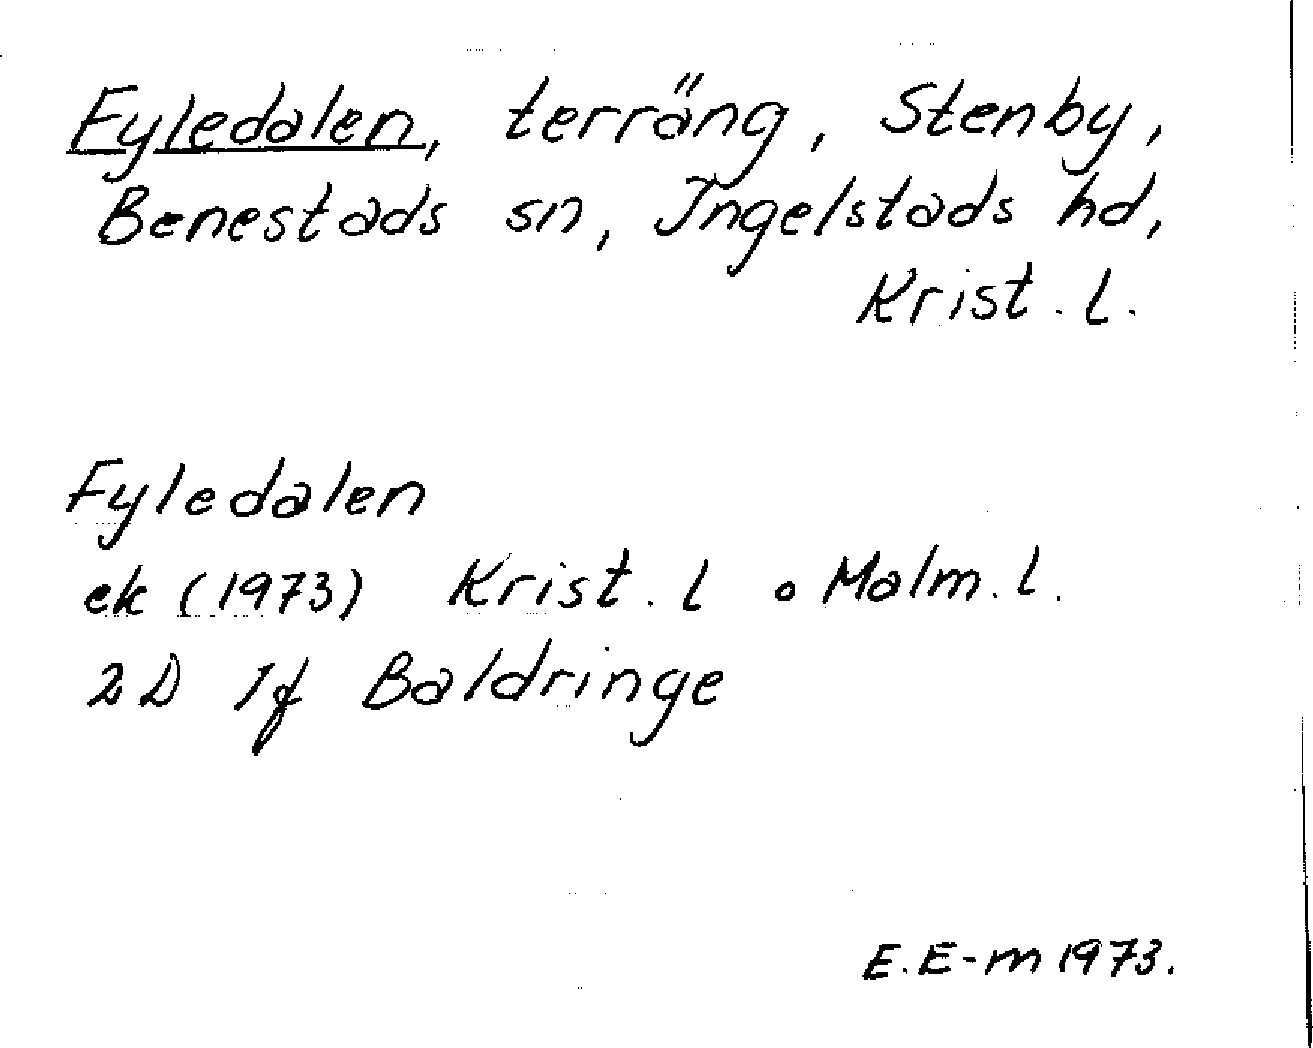 Fyledalen, terräng, Stenby,
Benestads sn, Ingelstads hd,
Krist. l.
Fyledalen
ek (1973) Krist. l o Malm. l.
2D 1f Baldringe
E. E-m 1973.